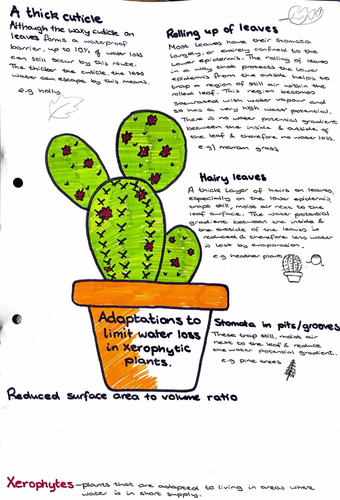 A thick cuticle
Although the waxy cuticle on
leaves forms a waterproof
barrier, up to 10% of water loss
can still occur by this route.
The thicker the cuticle, the less
water can escape by this means.
e.g holly
Rolling up of leaves
Most leaves have their stomata
largely, or entirely confined to the
lower epidermis. The rolling of leaves
in a way that protects the lower
epidermis from the outside helps to
trap a region of still air within the
rolled leaf. This region becomes
saturated with water vapour and
so has a very high water potential.
There is no water potential gradient
between the inside & outside of
the leaf & therefore no water loss.
e.g) marram grass
Hairy leaves
A thick layer of hairs on leaves,
especially on the lower epidermis,
traps still, moist air next to the
leaf surface. The water potential
gradient between the inside &
the outside of the leaves is
reduced & therefore less water
is lost by evaporation.
e.g heather plant
Adaptations to
limit water loss
in xerophytic
plants.
Stomata in pits/grooves
These trap still, moist air
next to the leaf & reduce
the water potential gradient.
e.g pine trees
Reduced surface area to volume ratio
Xerophytes - plants that are adapted to living in areas where
water is in short supply.